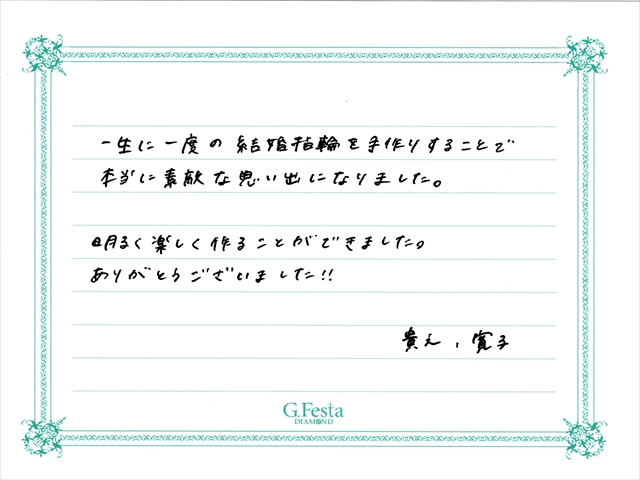 一生に一度の結婚指輪を手作りすることで
本当に素敵な思い出になりました。
明るく楽しく作ることができました。
ありがとうございました!!
G.Festa
DIAMOND